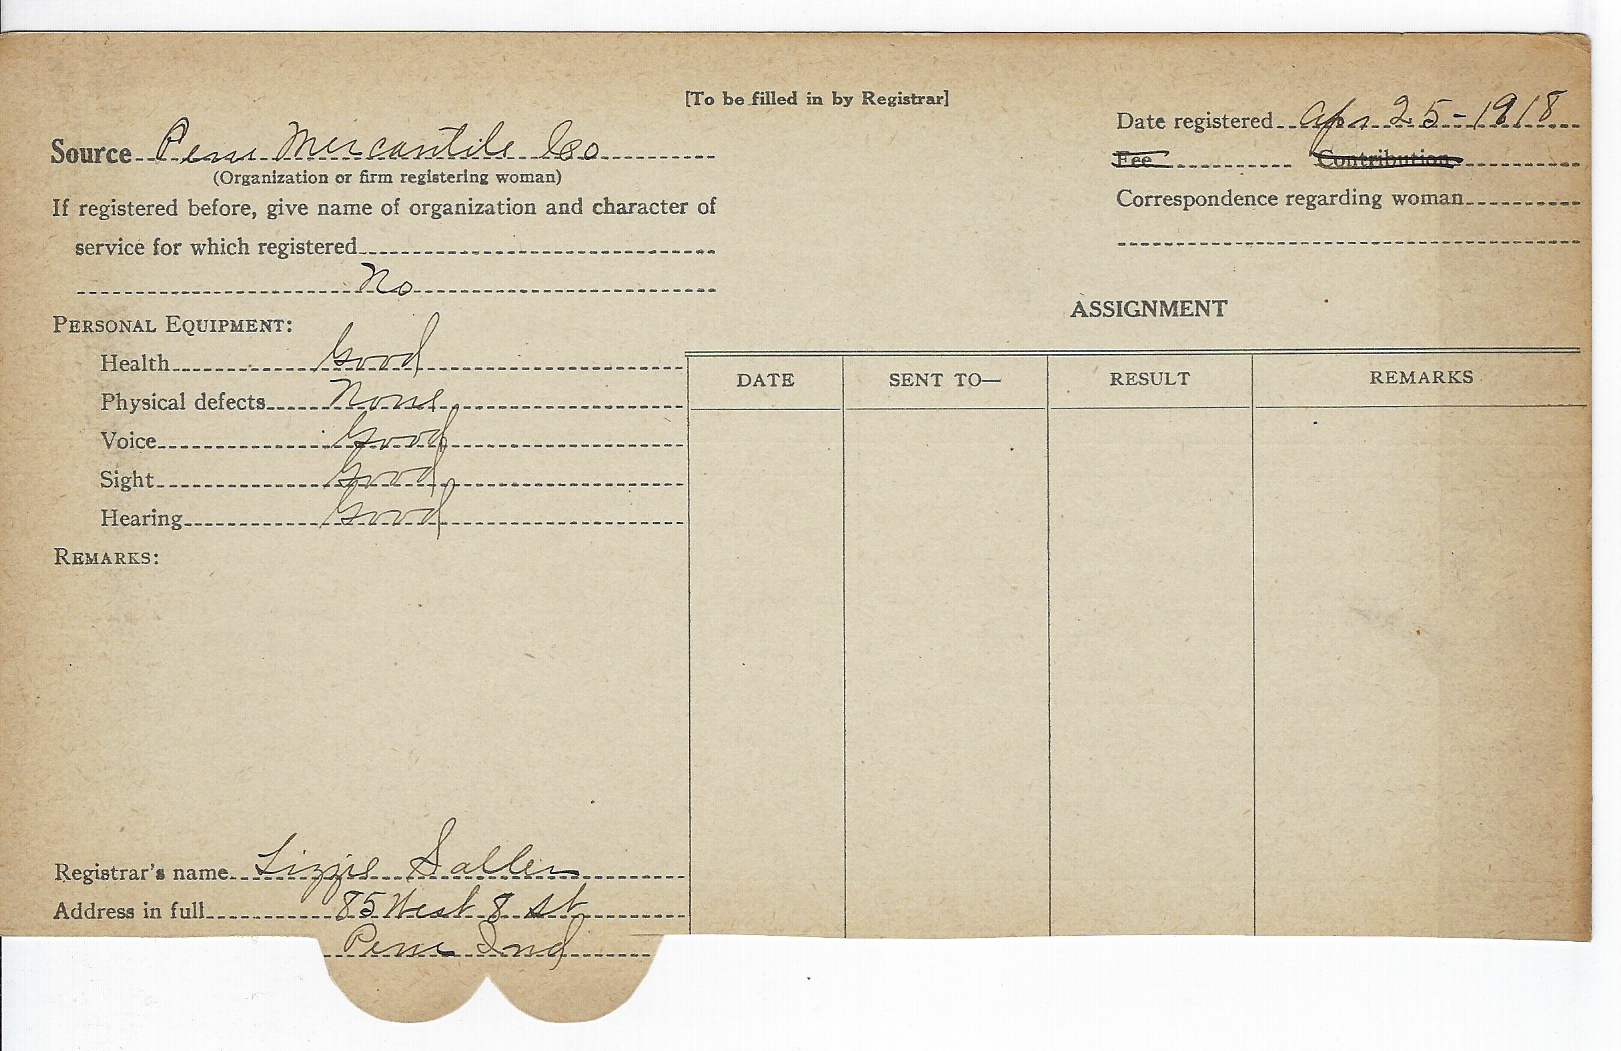 [To be filled in by Registrar]
Source Peru Mercantile Co
(Organization or firm registering woman)
If registered before, give name of organization and character of
service for which registered
No
PERSONAL EQUIPMENT:
Health Good
Physical defects None
Voice Good
Sight Good
Hearing Good
REMARKS:
Registrar's name Lizzie Saller
Address in full 85 West 8 St
Peru Ind
Date registered Apr 25-1918
Fee Contribution
Correspondence regarding woman
ASSIGNMENT
DATE SENT TO— RESULT REMARKS